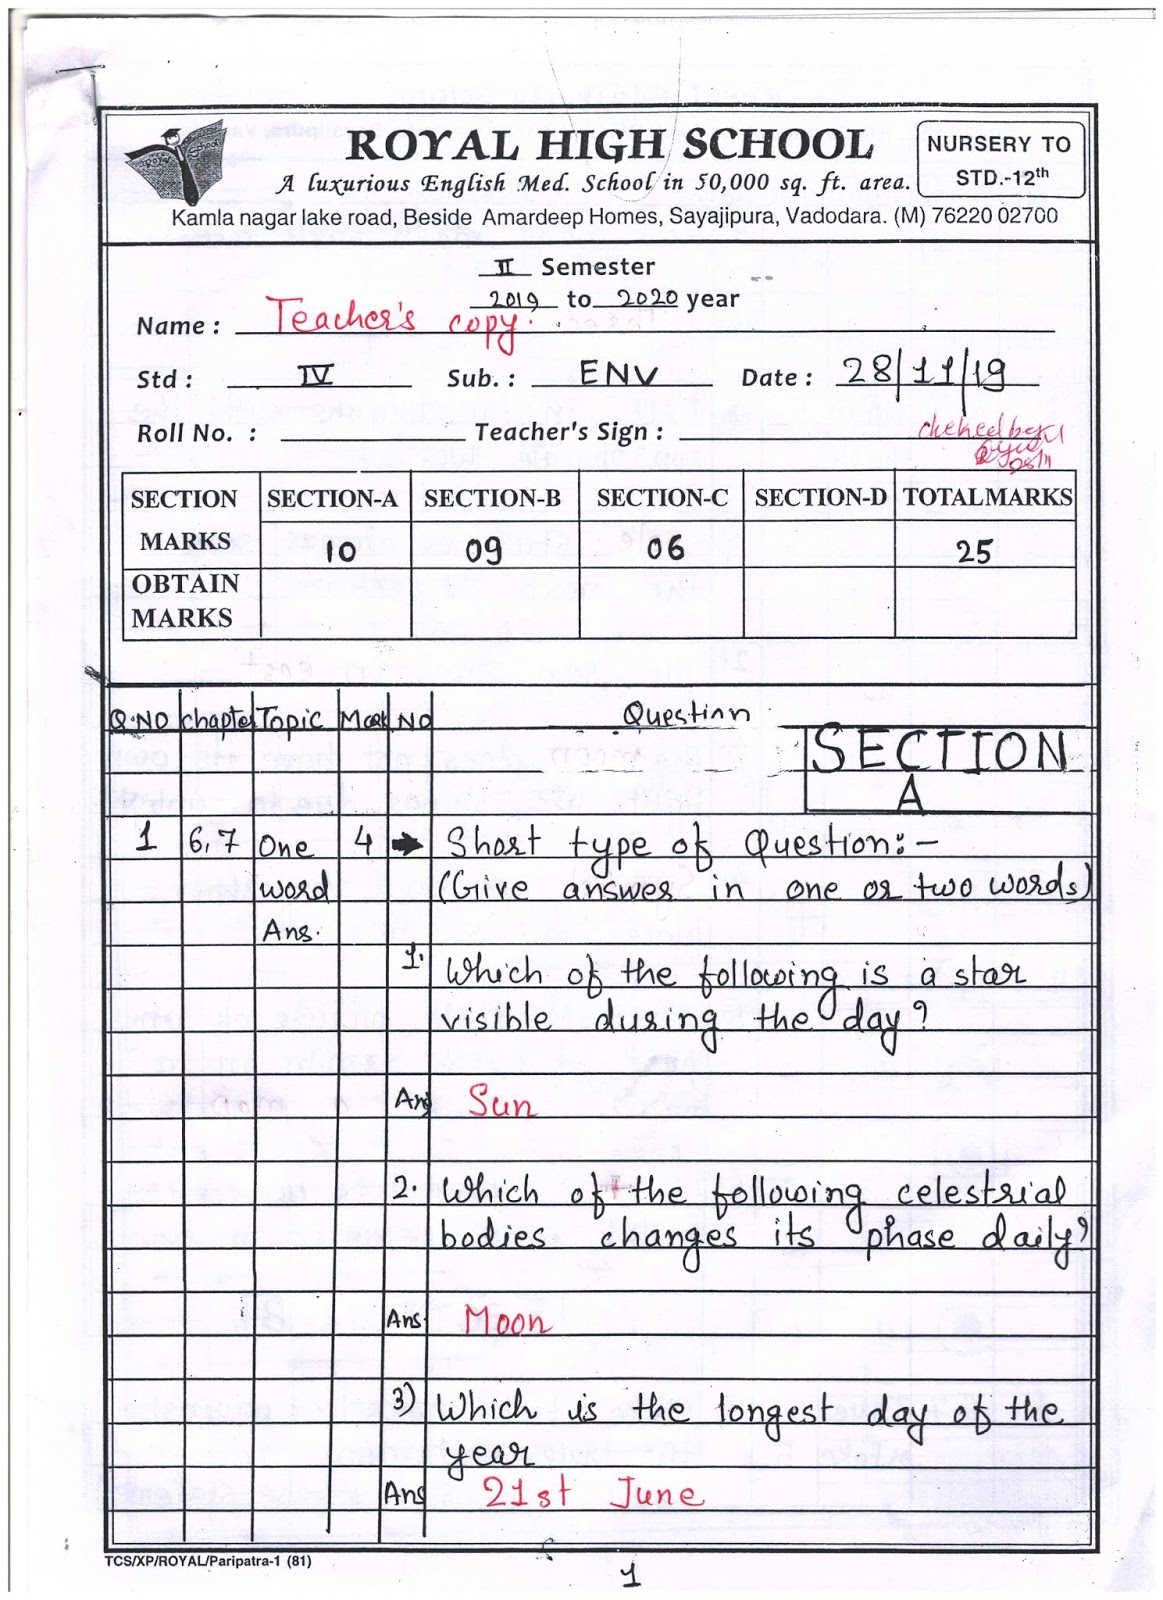 ROYAL HIGH SCHOOL
NURSERY TO
STD.-12th
A luxurious English Med. School in 50,000 sq. ft. area.
Kamla nagar lake road, Beside Amardeep Homes, Sayajipura, Vadodara. (M) 76220 02700
II Semester
2019 to 2020 year
Name : Teacher's copy.
Std : IV Sub. : ENV Date : 28/11/19
Roll No. : Teacher's Sign :
SECTION SECTION-A SECTION-B SECTION-C SECTION-D TOTALMARKS
MARKS 10 09 06 25
OBTAIN
MARKS
Q.NO chapter Topic Mark NO Question
SECTION
A
1 6,7 One 4 → Short type of Question:-
word (Give answer in one or two words)
Ans.
1. Which of the following is a star
visible during the day?
Ans Sun
2. Which of the following celestrial
bodies changes its phase daily?
Ans. Moon
3) Which is the longest day of the
year
Ans 21st June
TCS/XP/ROYAL/Paripatra-1 (81)
1